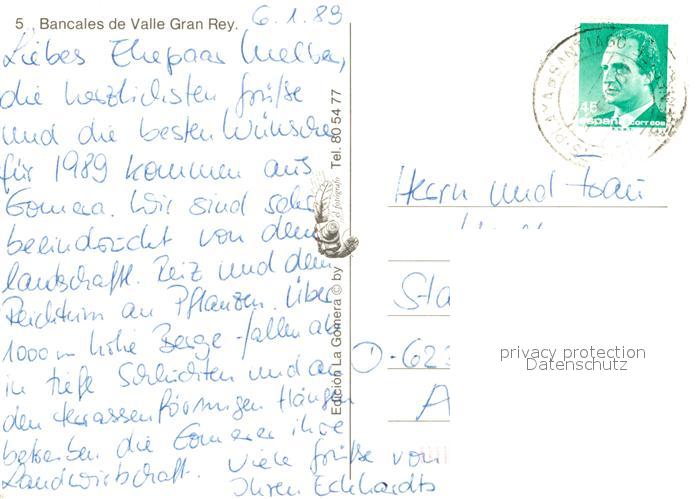 5 Bancales de Valle Gran Rey.
6.1.89
Liebes Ehepaar
die herzlichsten Grüße
und die besten Wünsche
für 1989 kommen aus
Gomera. Wir sind sehr
beeindruckt von dem
landschaftl. Reiz und dem
Reichtum an Pflanzen. Über
1000 m hohe Berge fallen ab
in tiefe Schluchten und an
den terrassenförmigen Hängen
betreiben die Gomerer ihre
Landwirtschaft. Viele Grüße von
Ihren Eckhardts
Edición La Gomera © by el fotógrafo Tel. 80 54 77
45
españa correos
Herrn und Frau
Sta
D-623
A
privacy protection
Datenschutz